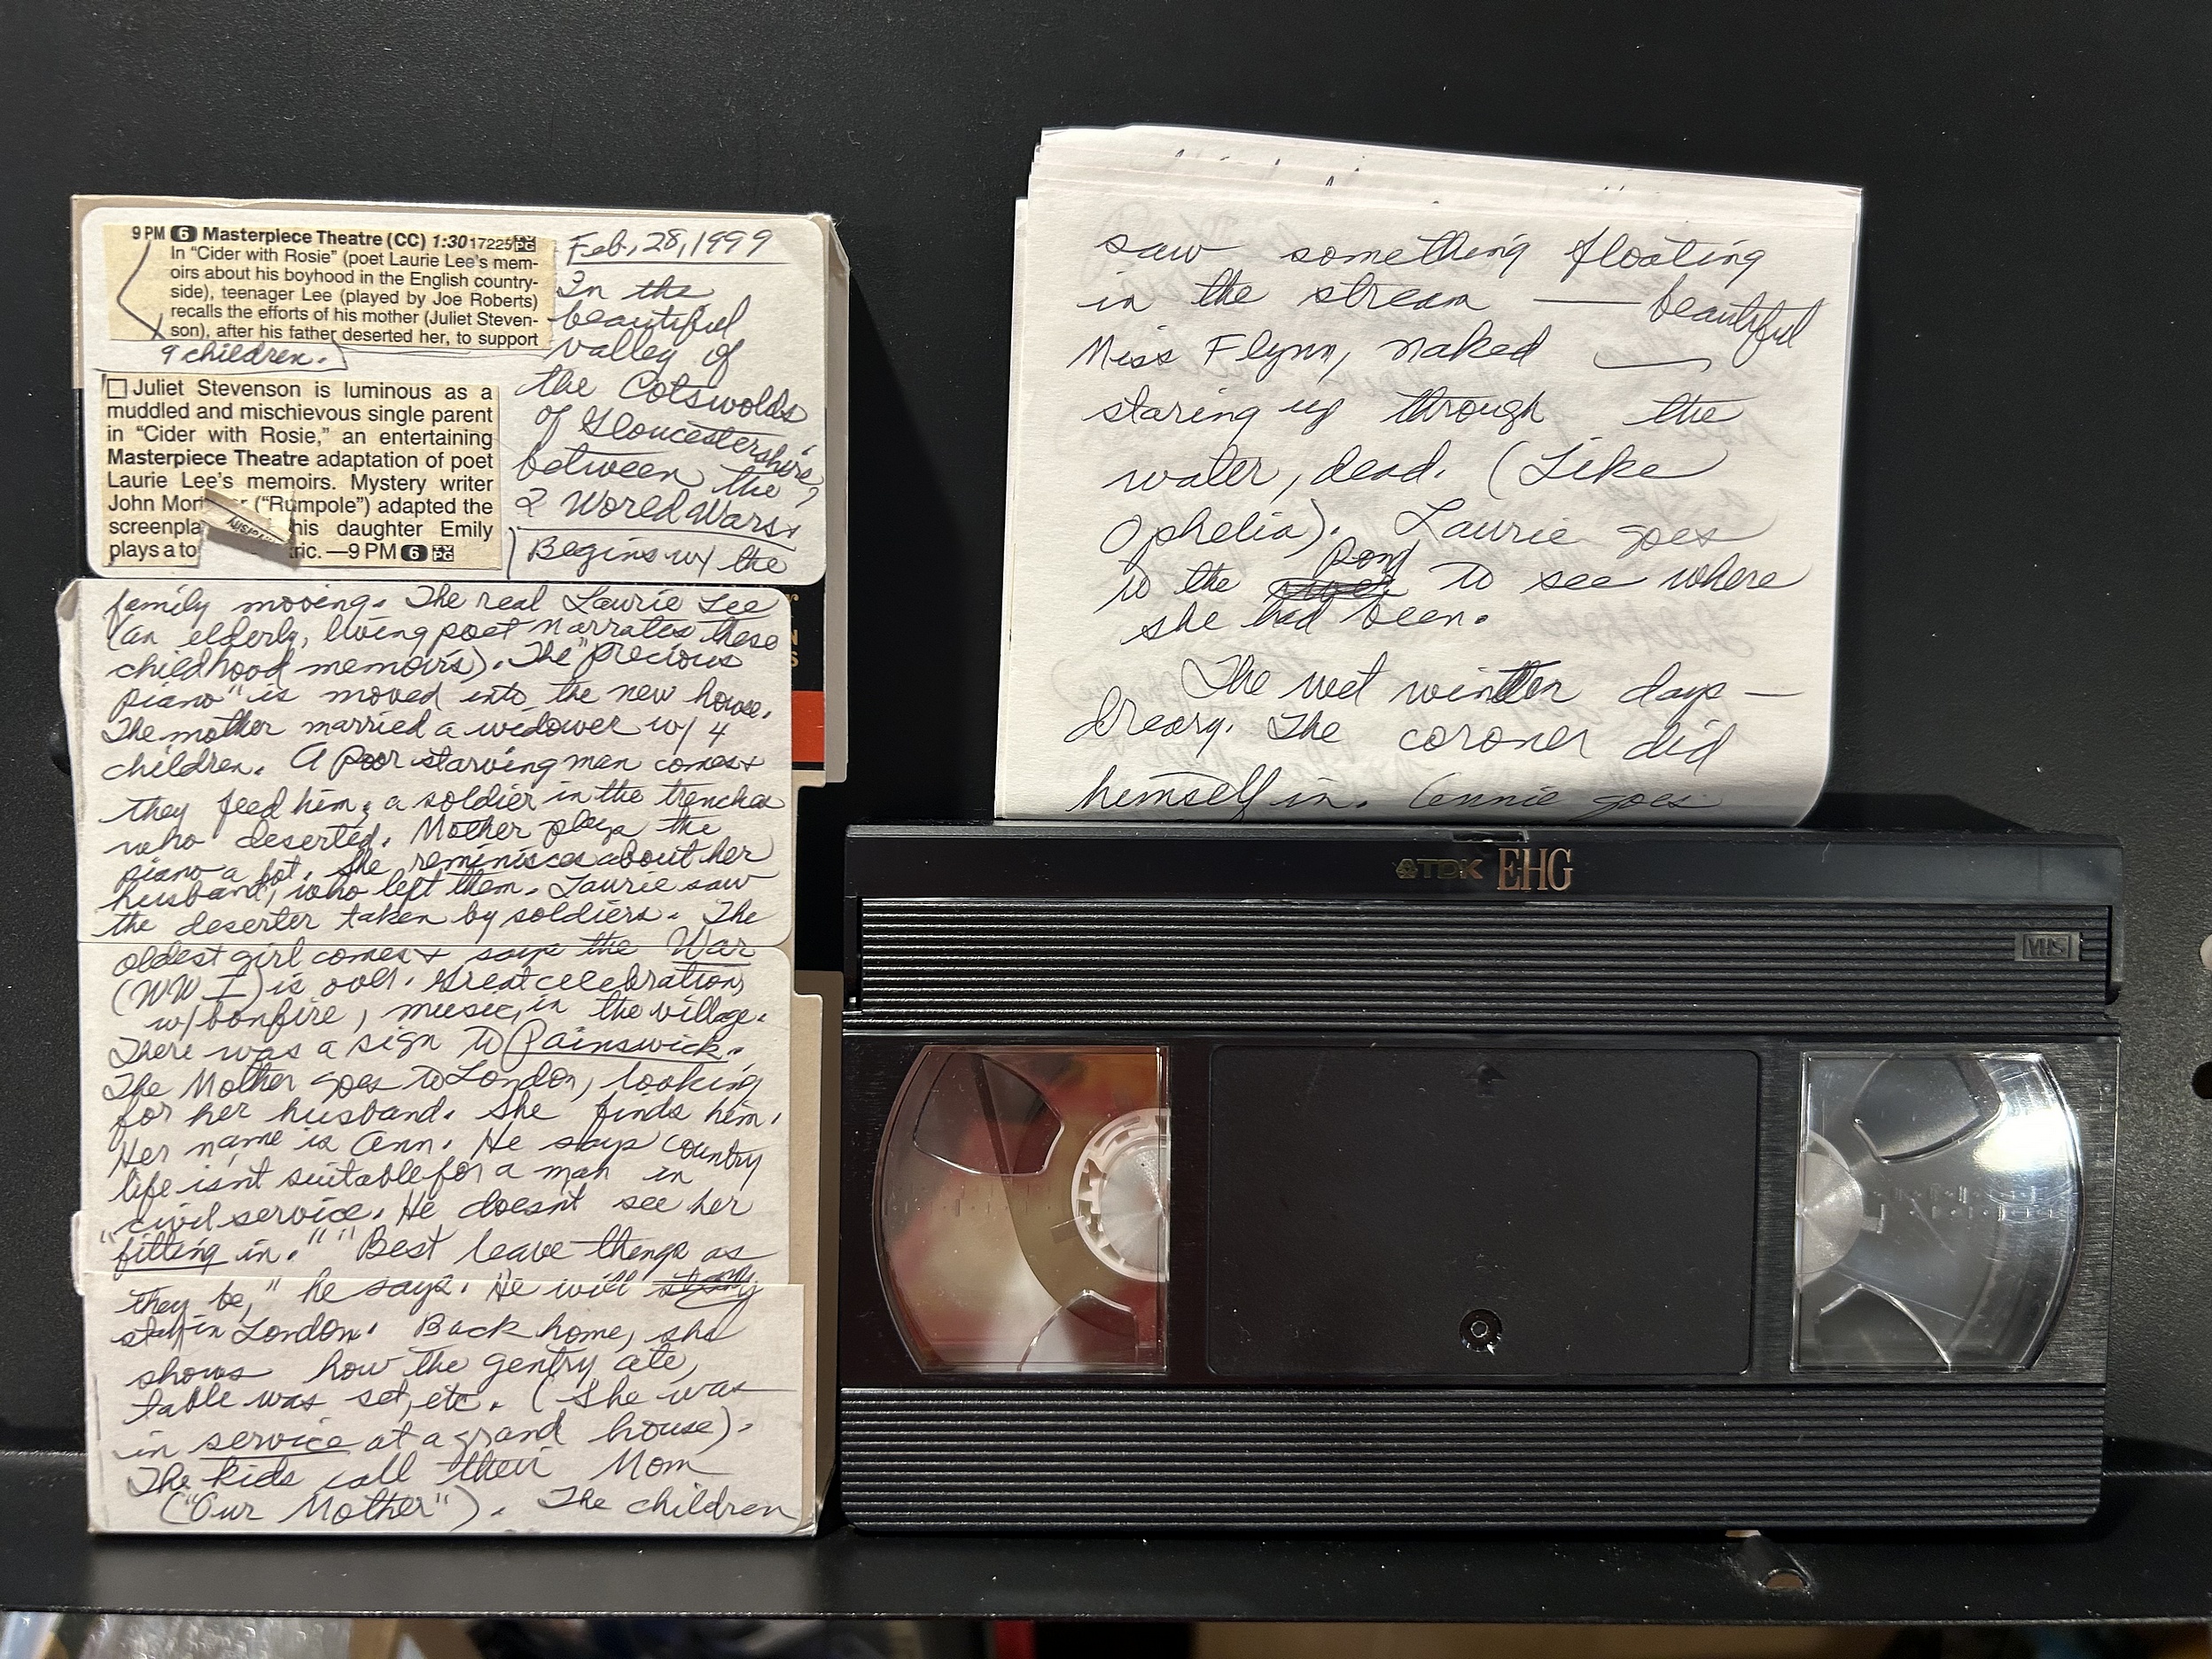 9 PM 6 Masterpiece Theatre (CC) 1:30 17225 TV PG
In "Cider with Rosie" (poet Laurie Lee's mem-
oirs about his boyhood in the English country-
side), teenager Lee (played by Joe Roberts)
recalls the efforts of his mother (Juliet Steven-
son), after his father deserted her, to support
9 children.
Juliet Stevenson is luminous as a
muddled and mischievous single parent
in "Cider with Rosie," an entertaining
Masterpiece Theatre adaptation of poet
Laurie Lee's memoirs. Mystery writer
John Mor er ("Rumpole") adapted the
screenpla his daughter Emily
plays a to ric. —9 PM 6 TV PG
Feb, 28, 1999
In the
beautiful
valley of
the Cotswolds
of Gloucestershire,
between the
2 World Wars.
Begins w/ the
family moving. The real Laurie Lee
(an elderly, living poet narrates these
childhood memoirs). The "precious
piano" is moved into the new house.
The mother married a widower w/ 4
children. A poor starving man comes +
they feed him; a soldier in the trenches
who deserted. Mother plays the
piano a lot. She reminisces about her
husband, who left them. Laurie saw
the deserter taken by soldiers. The
oldest girl comes + says the War
(WW I) is over. Great celebration,
w/ bonfire, music, in the village.
There was a sign to Painswick.
The Mother goes to London, looking
for her husband. She finds him.
Her name is Ann. He says country
life isn't suitable for a man in
civil service. He doesn't see her
"fitting in." "Best leave things as
they be," he says. He will
stay in London. Back home, she
shows how the gentry ate,
table was set, etc. (She was
in service at a grand house).
The kids call their Mom
("Our Mother"). The children
saw something floating
in the stream — beautiful
Miss Flynn, naked —
staring up through the
water, dead. (Like
Ophelia). Laurie goes
to the pond to see where
she had been.
The wet winter days —
dreary. The coroner did
himself in. goes
TDK EHG
VHS